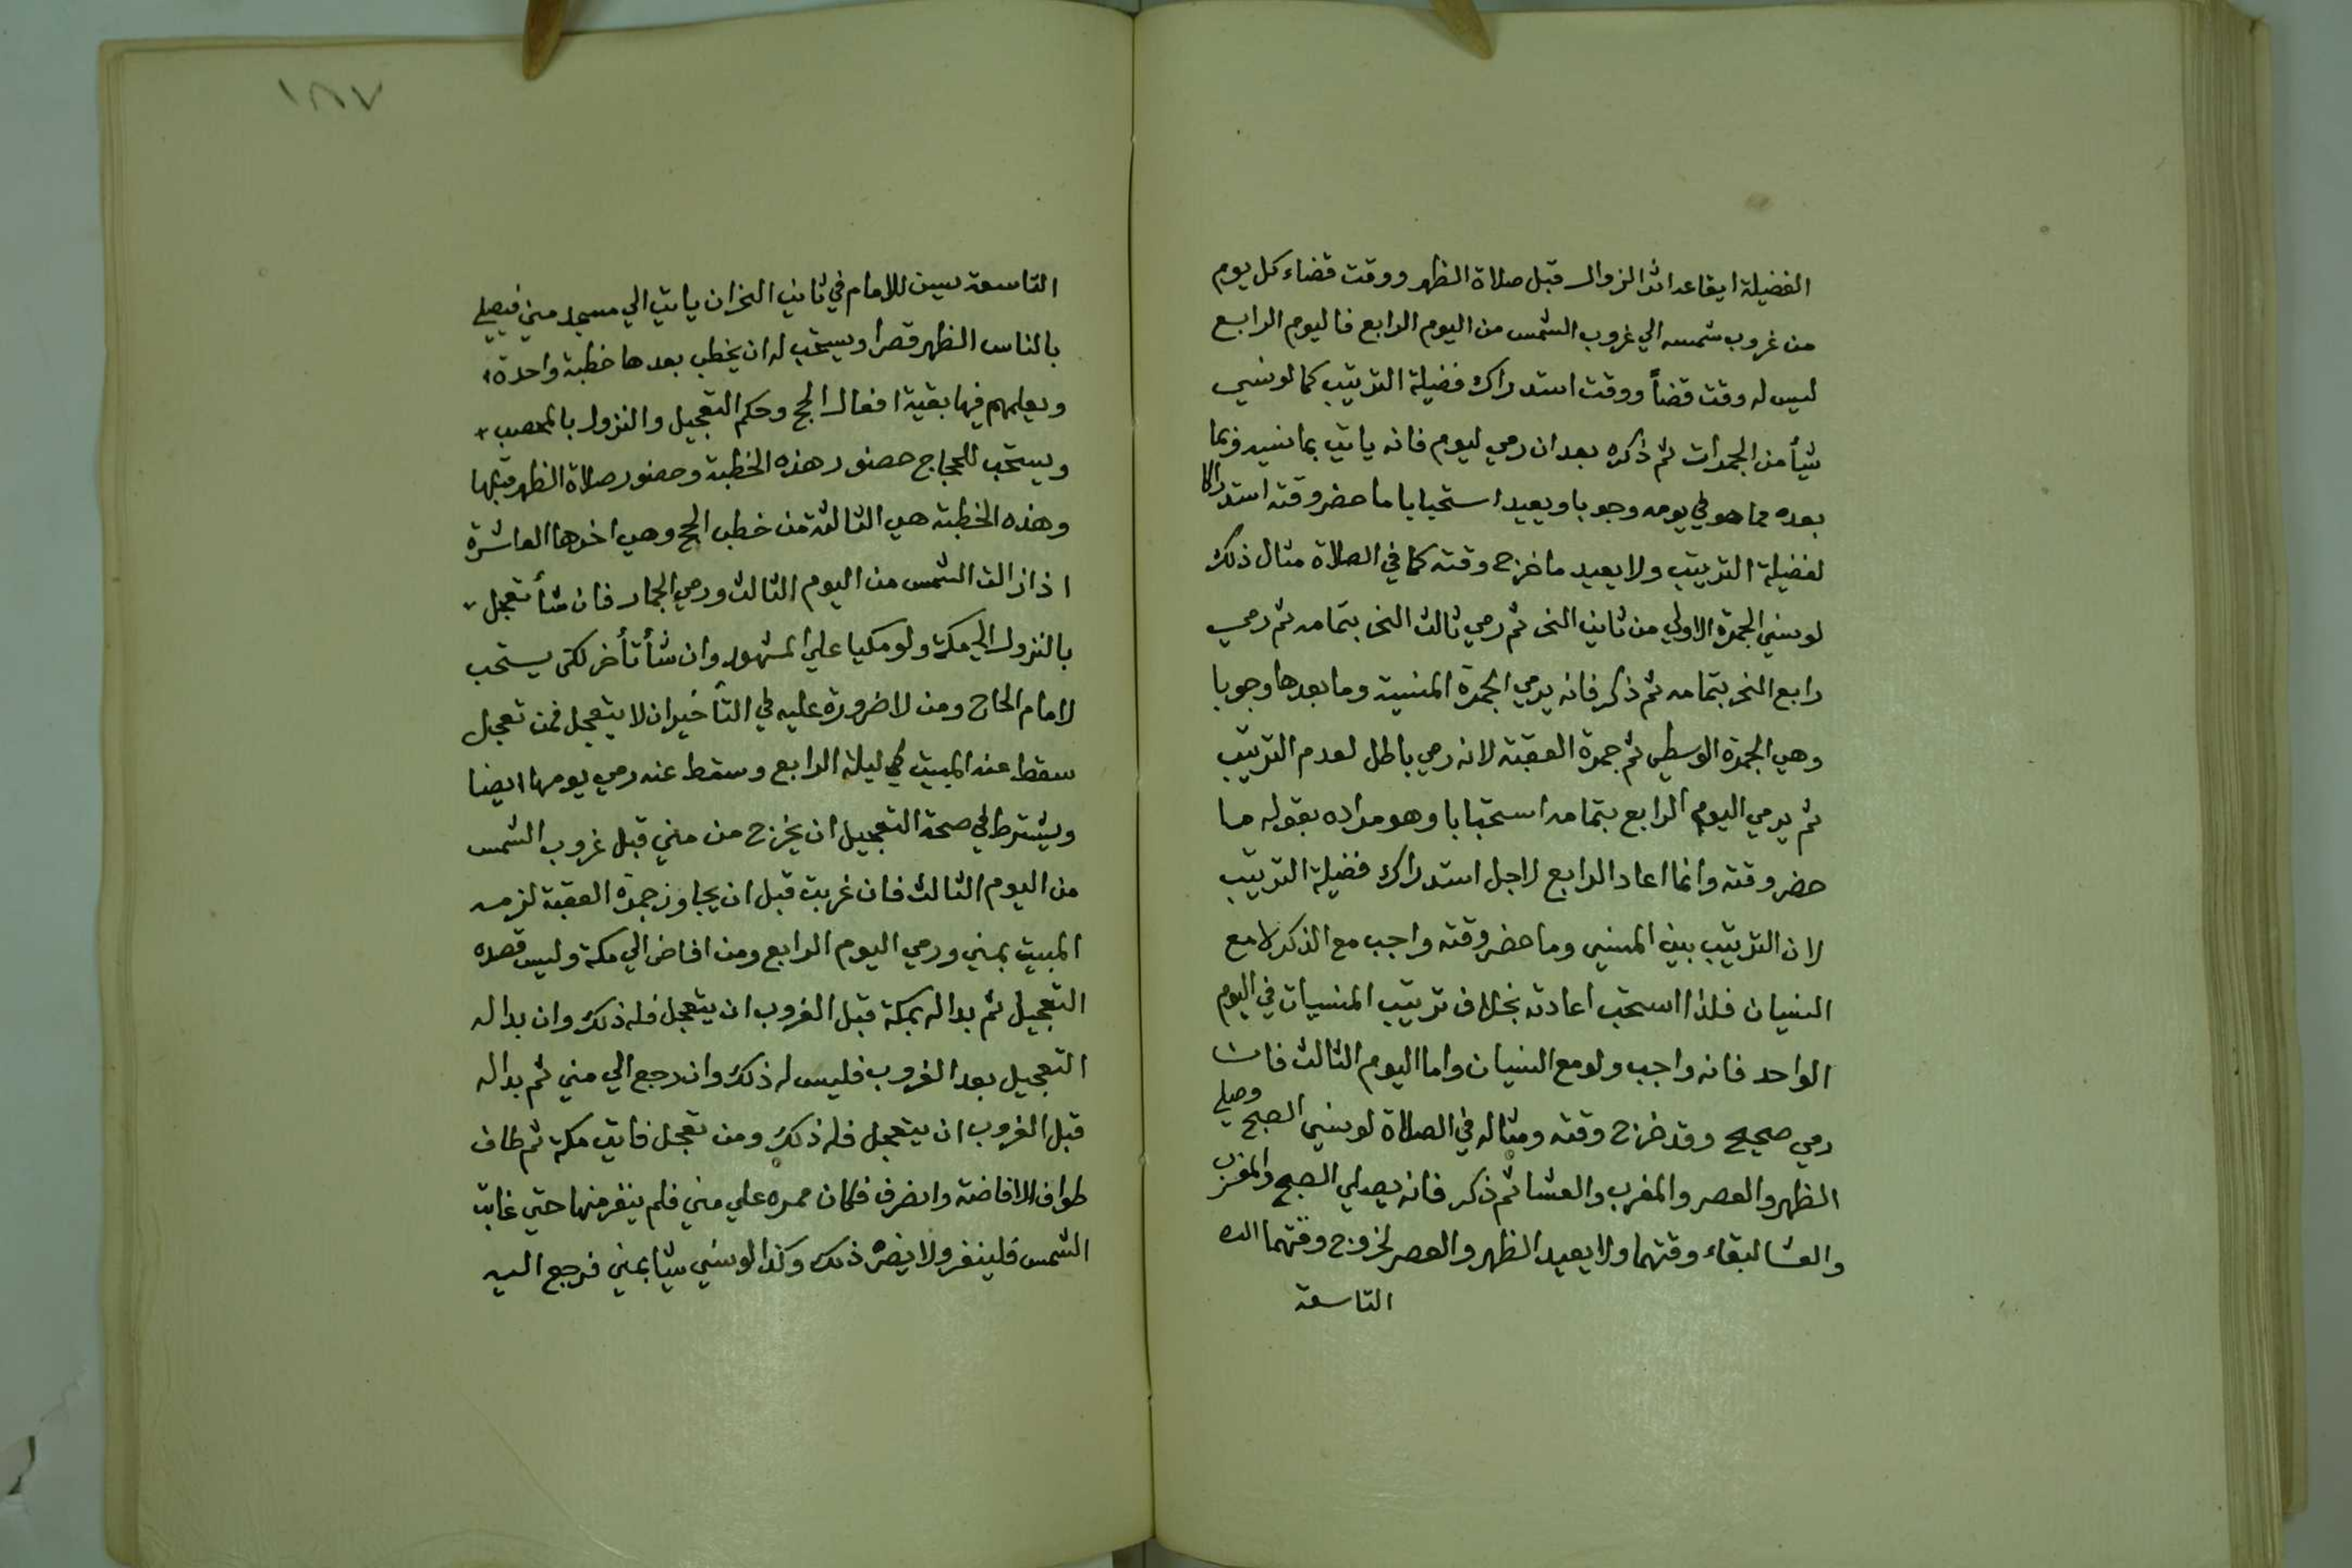 الفضيلة ايقاعه اثر الزوال قبل صلاة الظهر ووقت قضاء كل يوم
من غروب شمسه الي غروب الشمس من اليوم الرابع فاليوم الرابع
ليس له وقت قضأ ووقت استدراك فضيلة الترتيب كما لو نسي
شيأ من الجمرات ثم ذكره بعد ان رمي ليوم فانه ياتي بما نسيه وبما
بعده مما هو في يومه وجوبا ويعيد استحبابا ما حضر وقته استدراكا
لفضيلة الترتيب ولا يعيد ما خرج وقته كما في الصلاة مثال ذلك
لو نسي الجمرة الاولي من ثاني النحر ثم رمي ثالث النحر بتمامه ثم رمي
رابع النحر بتمامه ثم ذكر فانه يرمي الجمرة المنسية وما بعدها وجوبا
وهي الجمرة الوسطي ثم جمرة العقبة لانه رمي باطل لعدم الترتيب
ثم يرمي اليوم الرابع بتمامه استحبابا وهو مراده بقوله ما
حضر وقته وانما اعاد الرابع لاجل استدراك فضيلة الترتيب
لان الترتيب بين المنسي وما حضر وقته واجب مع الذكر لا مع
النسيان فلذا استحب اعادته بخلاف ترتيب المنسيات في اليوم
الواحد فانه واجب ولو مع النسيان واما اليوم الثالث فان
رمي صحيح وقد خرج وقته ومثاله في الصلاة لو نسي الصبح وصلي
الظهر والعصر والمغرب والعشا ثم ذكر فانه يصلي الصبح والمغرب
والعشا لبقاء وقتهما ولا يعيد الظهر والعصر لخروج وقتهما
التاسعة
١٨٧
التاسعة يسن للامام في ثاني النحر ان ياتي الي مسجد مني فيصلي
بالناس الظهر قصرا ويستحب له ان يخطب بعدها خطبة واحدة
ويعلمهم فيها بقية افعال الحج وحكم التعجيل والنزول بالمحصب
ويستحب للحجاج حضور هذه الخطبة وحضور صلاة الظهر قبلها
وهذه الخطبة هي الثالثة من خطب الحج وهي اخرها العاشرة
اذا زالت الشمس من اليوم الثالث ورمي الجمار فان شأ تعجل
بالنزول الي مكة ولو مكيا علي المشهور وان شأ تأخر لكن يستحب
لامام الحاج ومن لا ضرورة عليه في التأخير ان لا يتعجل فمن تعجل
سقط عنه المبيت في ليلة الرابع وسقط عنه رمي يومها ايضا
ويشترط في صحة التعجيل ان يخرج من مني قبل غروب الشمس
من اليوم الثالث فان غربت قبل ان يجاوز جمرة العقبة لزمه
المبيت بمني ورمي اليوم الرابع ومن افاض الي مكة وليس قصده
التعجيل ثم بدا له بمكة قبل الغروب ان يتعجل فله ذلك وان بدا له
التعجيل بعد الغروب فليس له ذلك وان رجع الي مني ثم بدا له
قبل الغروب ان يتعجل فله ذلك ومن تعجل فاتي مكة ثم طاف
طواف الافاضة وانصرف فكان ممره علي مني فلم ينفر منها حتي غابت
الشمس فلينفر ولا يضره ذلك وكذا لو نسي شيا بمني فرجع اليه